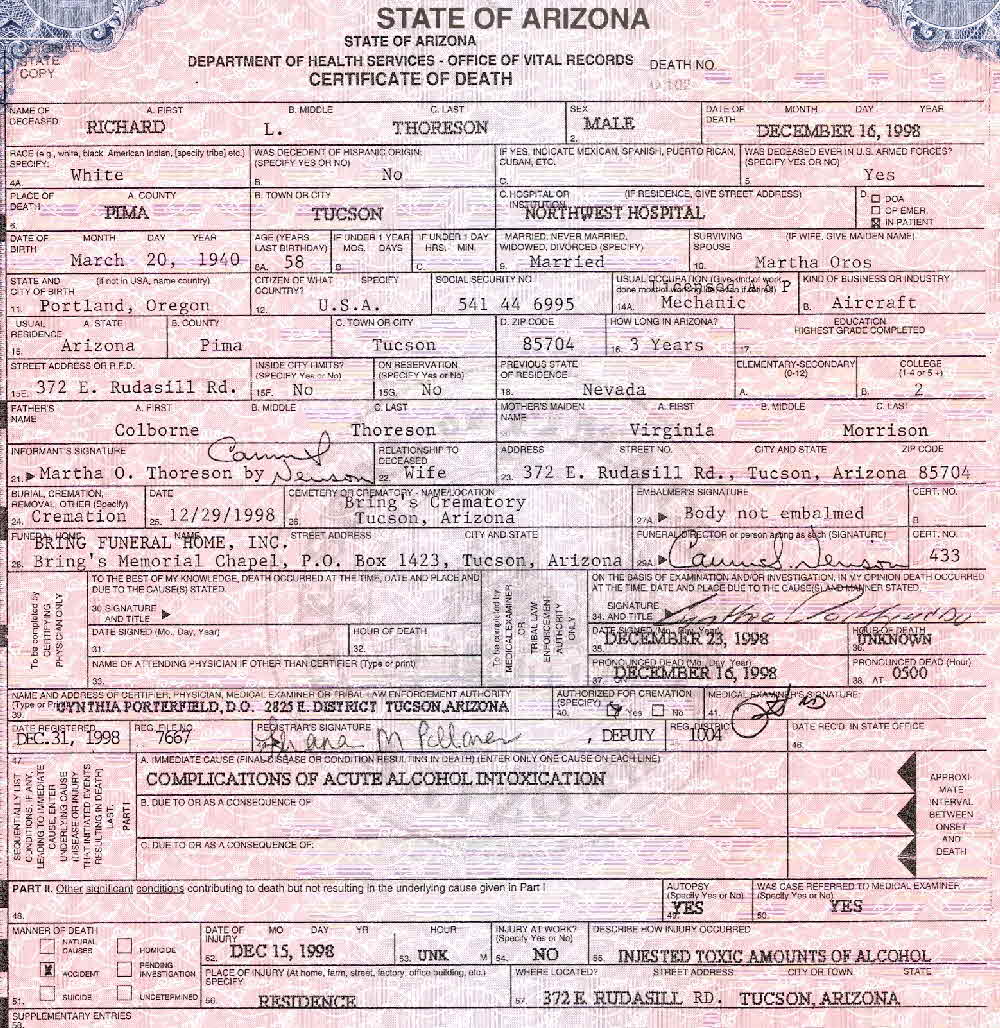 STATE OF ARIZONA
STATE OF ARIZONA
DEPARTMENT OF HEALTH SERVICES - OFFICE OF VITAL RECORDS DEATH NO.
STATE COPY
CERTIFICATE OF DEATH
NAME OF DECEASED A. FIRST B. MIDDLE C. LAST SEX DATE OF DEATH MONTH DAY YEAR
RICHARD L. THORESON 2. MALE DECEMBER 16, 1998
RACE (e.g., white, black, American Indian, (specify tribe) etc.) SPECIFY: WAS DECEDENT OF HISPANIC ORIGIN: (SPECIFY YES OR NO) IF YES, INDICATE MEXICAN, SPANISH, PUERTO RICAN, CUBAN, ETC. WAS DECEASED EVER IN U.S. ARMED FORCES? (SPECIFY YES OR NO)
4A. White B. No C. 5. Yes
PLACE OF DEATH A. COUNTY B. TOWN OR CITY C. HOSPITAL OR INSTITUTION (IF RESIDENCE, GIVE STREET ADDRESS) D. DOA OP EMER. IN PATIENT
6. PIMA TUCSON NORTHWEST HOSPITAL
DATE OF BIRTH MONTH DAY YEAR AGE (YEARS LAST BIRTHDAY) IF UNDER 1 YEAR MOS. DAYS IF UNDER 1 DAY HRS. MIN. MARRIED, NEVER MARRIED, WIDOWED, DIVORCED (SPECIFY) SURVIVING SPOUSE (IF WIFE, GIVE MAIDEN NAME)
March 20, 1940 8A. 58 B. C. 9. Married 10. Martha Oros
STATE AND CITY OF BIRTH (if not in USA, name country) CITIZEN OF WHAT COUNTRY? SPECIFY SOCIAL SECURITY NO. USUAL OCCUPATION KIND OF BUSINESS OR INDUSTRY
11. Portland, Oregon 12. U.S.A. 541 44 6995 14A. Licensed A & P Mechanic B. Aircraft
USUAL RESIDENCE A. STATE B. COUNTY C. TOWN OR CITY D. ZIP CODE HOW LONG IN ARIZONA? EDUCATION HIGHEST GRADE COMPLETED
15. Arizona Pima Tucson 85704 16. 3 Years 17.
STREET ADDRESS OR R.F.D. INSIDE CITY LIMITS? (SPECIFY Yes or No) ON RESERVATION (SPECIFY Yes or No) PREVIOUS STATE OF RESIDENCE ELEMENTARY-SECONDARY (0-12) COLLEGE (1-4 or 5+)
15E. 372 E. Rudasill Rd. 15F. No 15G. No 18. Nevada A. B. 2
FATHER'S NAME A. FIRST B. MIDDLE C. LAST MOTHER'S MAIDEN NAME A. FIRST B. MIDDLE C. LAST
Colborne Thoreson Virginia Morrison
INFORMANT'S SIGNATURE RELATIONSHIP TO DECEASED ADDRESS STREET NO. CITY AND STATE ZIP CODE
21. Martha O. Thoreson by 22. Wife 23. 372 E. Rudasill Rd., Tucson, Arizona 85704
BURIAL, CREMATION, REMOVAL, OTHER (Specify) DATE CEMETERY OR CREMATORY - NAME/LOCATION EMBALMER'S SIGNATURE CERT. NO.
24. Cremation 25. 12/29/1998 26. Bring's Crematory Tucson, Arizona 27A. Body not embalmed B.
FUNERAL HOME NAME STREET ADDRESS CITY AND STATE FUNERAL DIRECTOR or person acting as such (SIGNATURE) CERT. NO.
BRING FUNERAL HOME, INC.
28. Bring's Memorial Chapel, P.O. Box 1423, Tucson, Arizona 29A. 433
To be completed by CERTIFYING PHYSICIAN ONLY
TO THE BEST OF MY KNOWLEDGE, DEATH OCCURRED AT THE TIME, DATE AND PLACE AND DUE TO THE CAUSE(S) STATED.
30. SIGNATURE AND TITLE
DATE SIGNED (Mo., Day, Year) HOUR OF DEATH
31. 32.
NAME OF ATTENDING PHYSICIAN IF OTHER THAN CERTIFIER (Type or print)
33.
To be completed by MEDICAL EXAMINER OR TRIBAL LAW ENFORCEMENT AUTHORITY ONLY
ON THE BASIS OF EXAMINATION AND/OR INVESTIGATION, IN MY OPINION DEATH OCCURRED AT THE TIME, DATE AND PLACE DUE TO THE CAUSE(S) AND MANNER STATED.
SIGNATURE
34. AND TITLE
DATE SIGNED (Mo., Day, Year) HOUR OF DEATH
35. DECEMBER 23, 1998 36. UNKNOWN
PRONOUNCED DEAD (Mo., Day, Year) PRONOUNCED DEAD (Hour)
37. ON DECEMBER 16, 1998 38. AT 0500
NAME AND ADDRESS OF CERTIFIER, PHYSICIAN, MEDICAL EXAMINER OR TRIBAL LAW ENFORCEMENT AUTHORITY (Type or Print) AUTHORIZED FOR CREMATION (SPECIFY) MEDICAL EXAMINER'S SIGNATURE
39. CYNTHIA PORTERFIELD, D.O. 2825 E. DISTRICT TUCSON, ARIZONA 40. Yes No 41.
DATE REGISTERED REG. FILE NO. REGISTRAR'S SIGNATURE REG. DISTRICT DATE REC'D. IN STATE OFFICE
DEC. 31, 1998 7667 , DEPUTY 1004 46.
47.
SEQUENTIALLY LIST CONDITIONS, IF ANY, LEADING TO IMMEDIATE CAUSE. ENTER UNDERLYING CAUSE (DISEASE OR INJURY THAT INITIATED EVENTS RESULTING IN DEATH) LAST.
PART I
A. IMMEDIATE CAUSE (FINAL DISEASE OR CONDITION RESULTING IN DEATH) (ENTER ONLY ONE CAUSE ON EACH LINE)
COMPLICATIONS OF ACUTE ALCOHOL INTOXICATION
B. DUE TO OR AS A CONSEQUENCE OF
C. DUE TO OR AS A CONSEQUENCE OF:
APPROXI-
MATE
INTERVAL
BETWEEN
ONSET
AND
DEATH
PART II. Other significant conditions contributing to death but not resulting in the underlying cause given in Part I AUTOPSY (Specify Yes or No) WAS CASE REFERRED TO MEDICAL EXAMINER (Specify Yes or No)
48. 49. YES 50. YES
MANNER OF DEATH DATE OF INJURY MO DAY YR HOUR INJURY AT WORK? (Specify Yes or No) DESCRIBE HOW INJURY OCCURRED
NATURAL CAUSES HOMICIDE 52. DEC 15, 1998 53. UNK M 54. NO 55. INJESTED TOXIC AMOUNTS OF ALCOHOL
ACCIDENT PENDING INVESTIGATION PLACE OF INJURY (At home, farm, street, factory, office building, etc.) SPECIFY WHERE LOCATED? STREET ADDRESS CITY OR TOWN STATE
51. SUICIDE UNDETERMINED 56. RESIDENCE 57. 372 E. RUDASILL RD. TUCSON, ARIZONA
SUPPLEMENTARY ENTRIES
58.